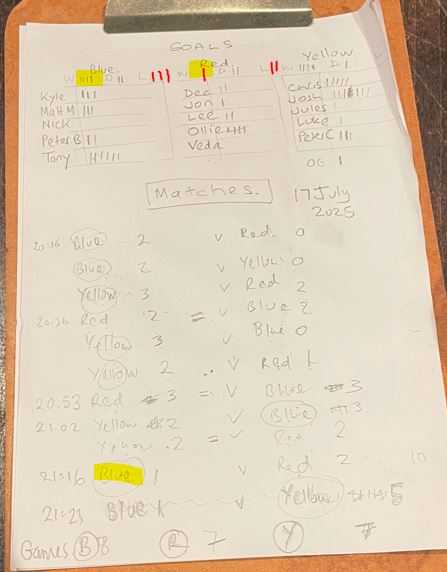 GOALS
Blue Red Yellow
W IIII D II L IIII W I D II L II W IIII D I
Kyle III Dec II Chris IIIII
Matt M III Jon I Josh
Nick Lee II Jules I
Peter B II Ollie IIII Luke I
Tony IIIII Veda Peter C III
OG I
Matches.
17 July
2025
20:16 Blue 2 v Red 0
Blue 2 v Yellow 0
Yellow 3 v Red 2
20.36 Red 2 = v Blue 2
Yellow 3 v Blue 0
Yellow 2 v Red 1
20.53 Red 3 = v Blue 3
21.02 Yellow 2 v Blue 3
Yellow 2 = v Red 2
21:16 Blue 1 v Red 2 10
21:23 Blue 1 v Yellow 5
Games B 8 R 7 Y